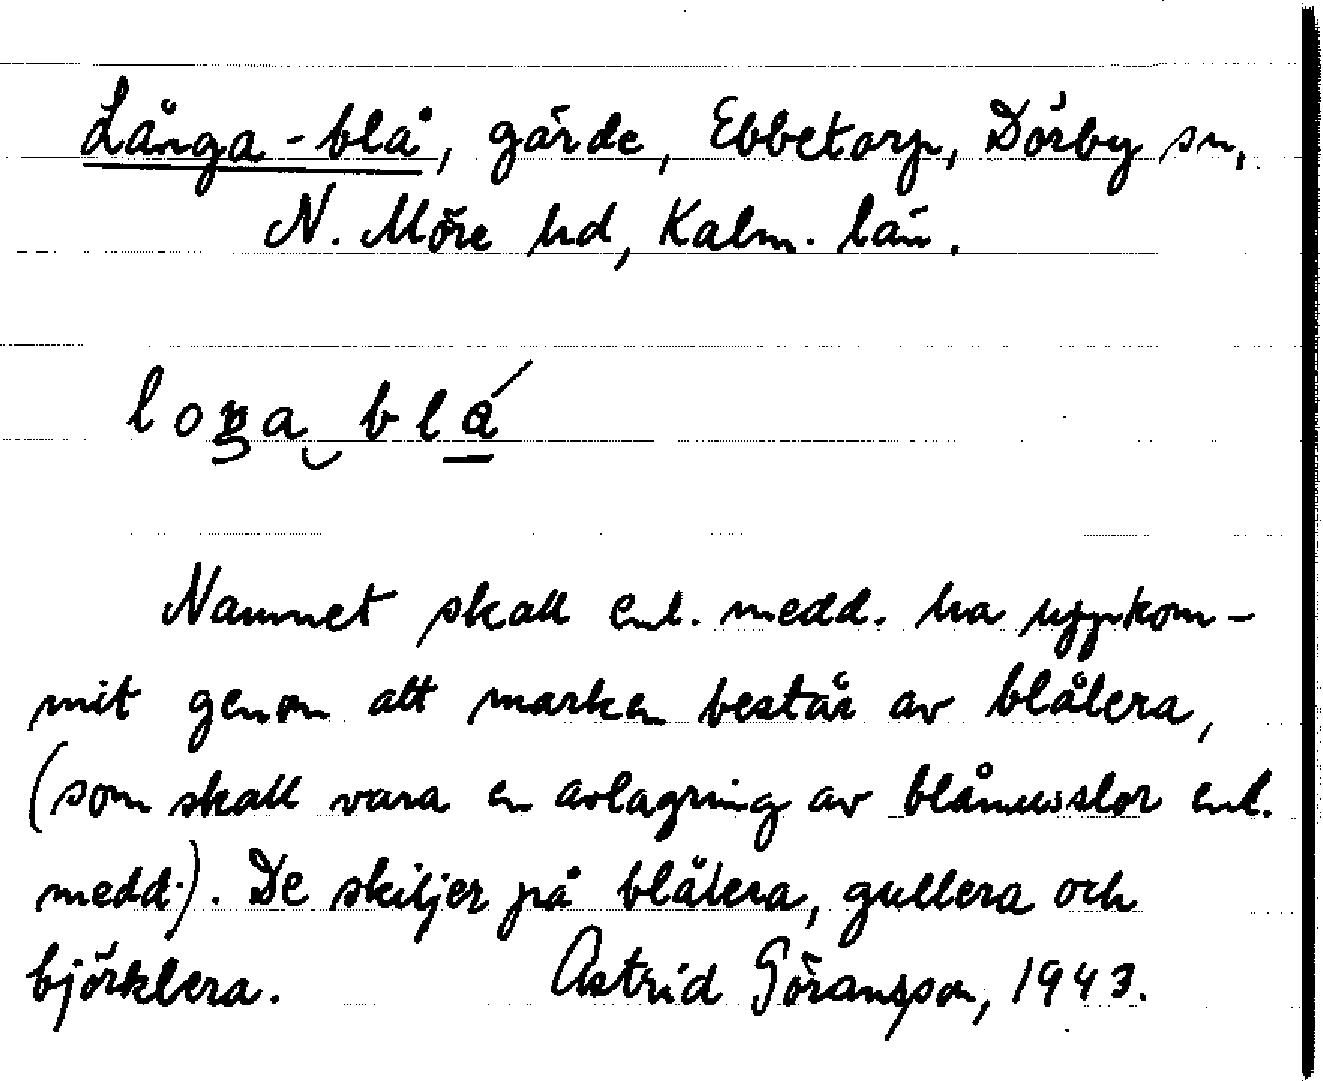 Långa-blå, gärde, Ebbetorp, Dörby sn,
N. Möre hd, Kalm. län.
loŋa blá
Namnet skall enl. medd. ha uppkom-
mit genom att marken består av blålera,
(som skall vara en avlagring av blåmusslor enl.
medd.). De skiljer på blålera, gullera och
björklera. Astrid Göransson, 1943.